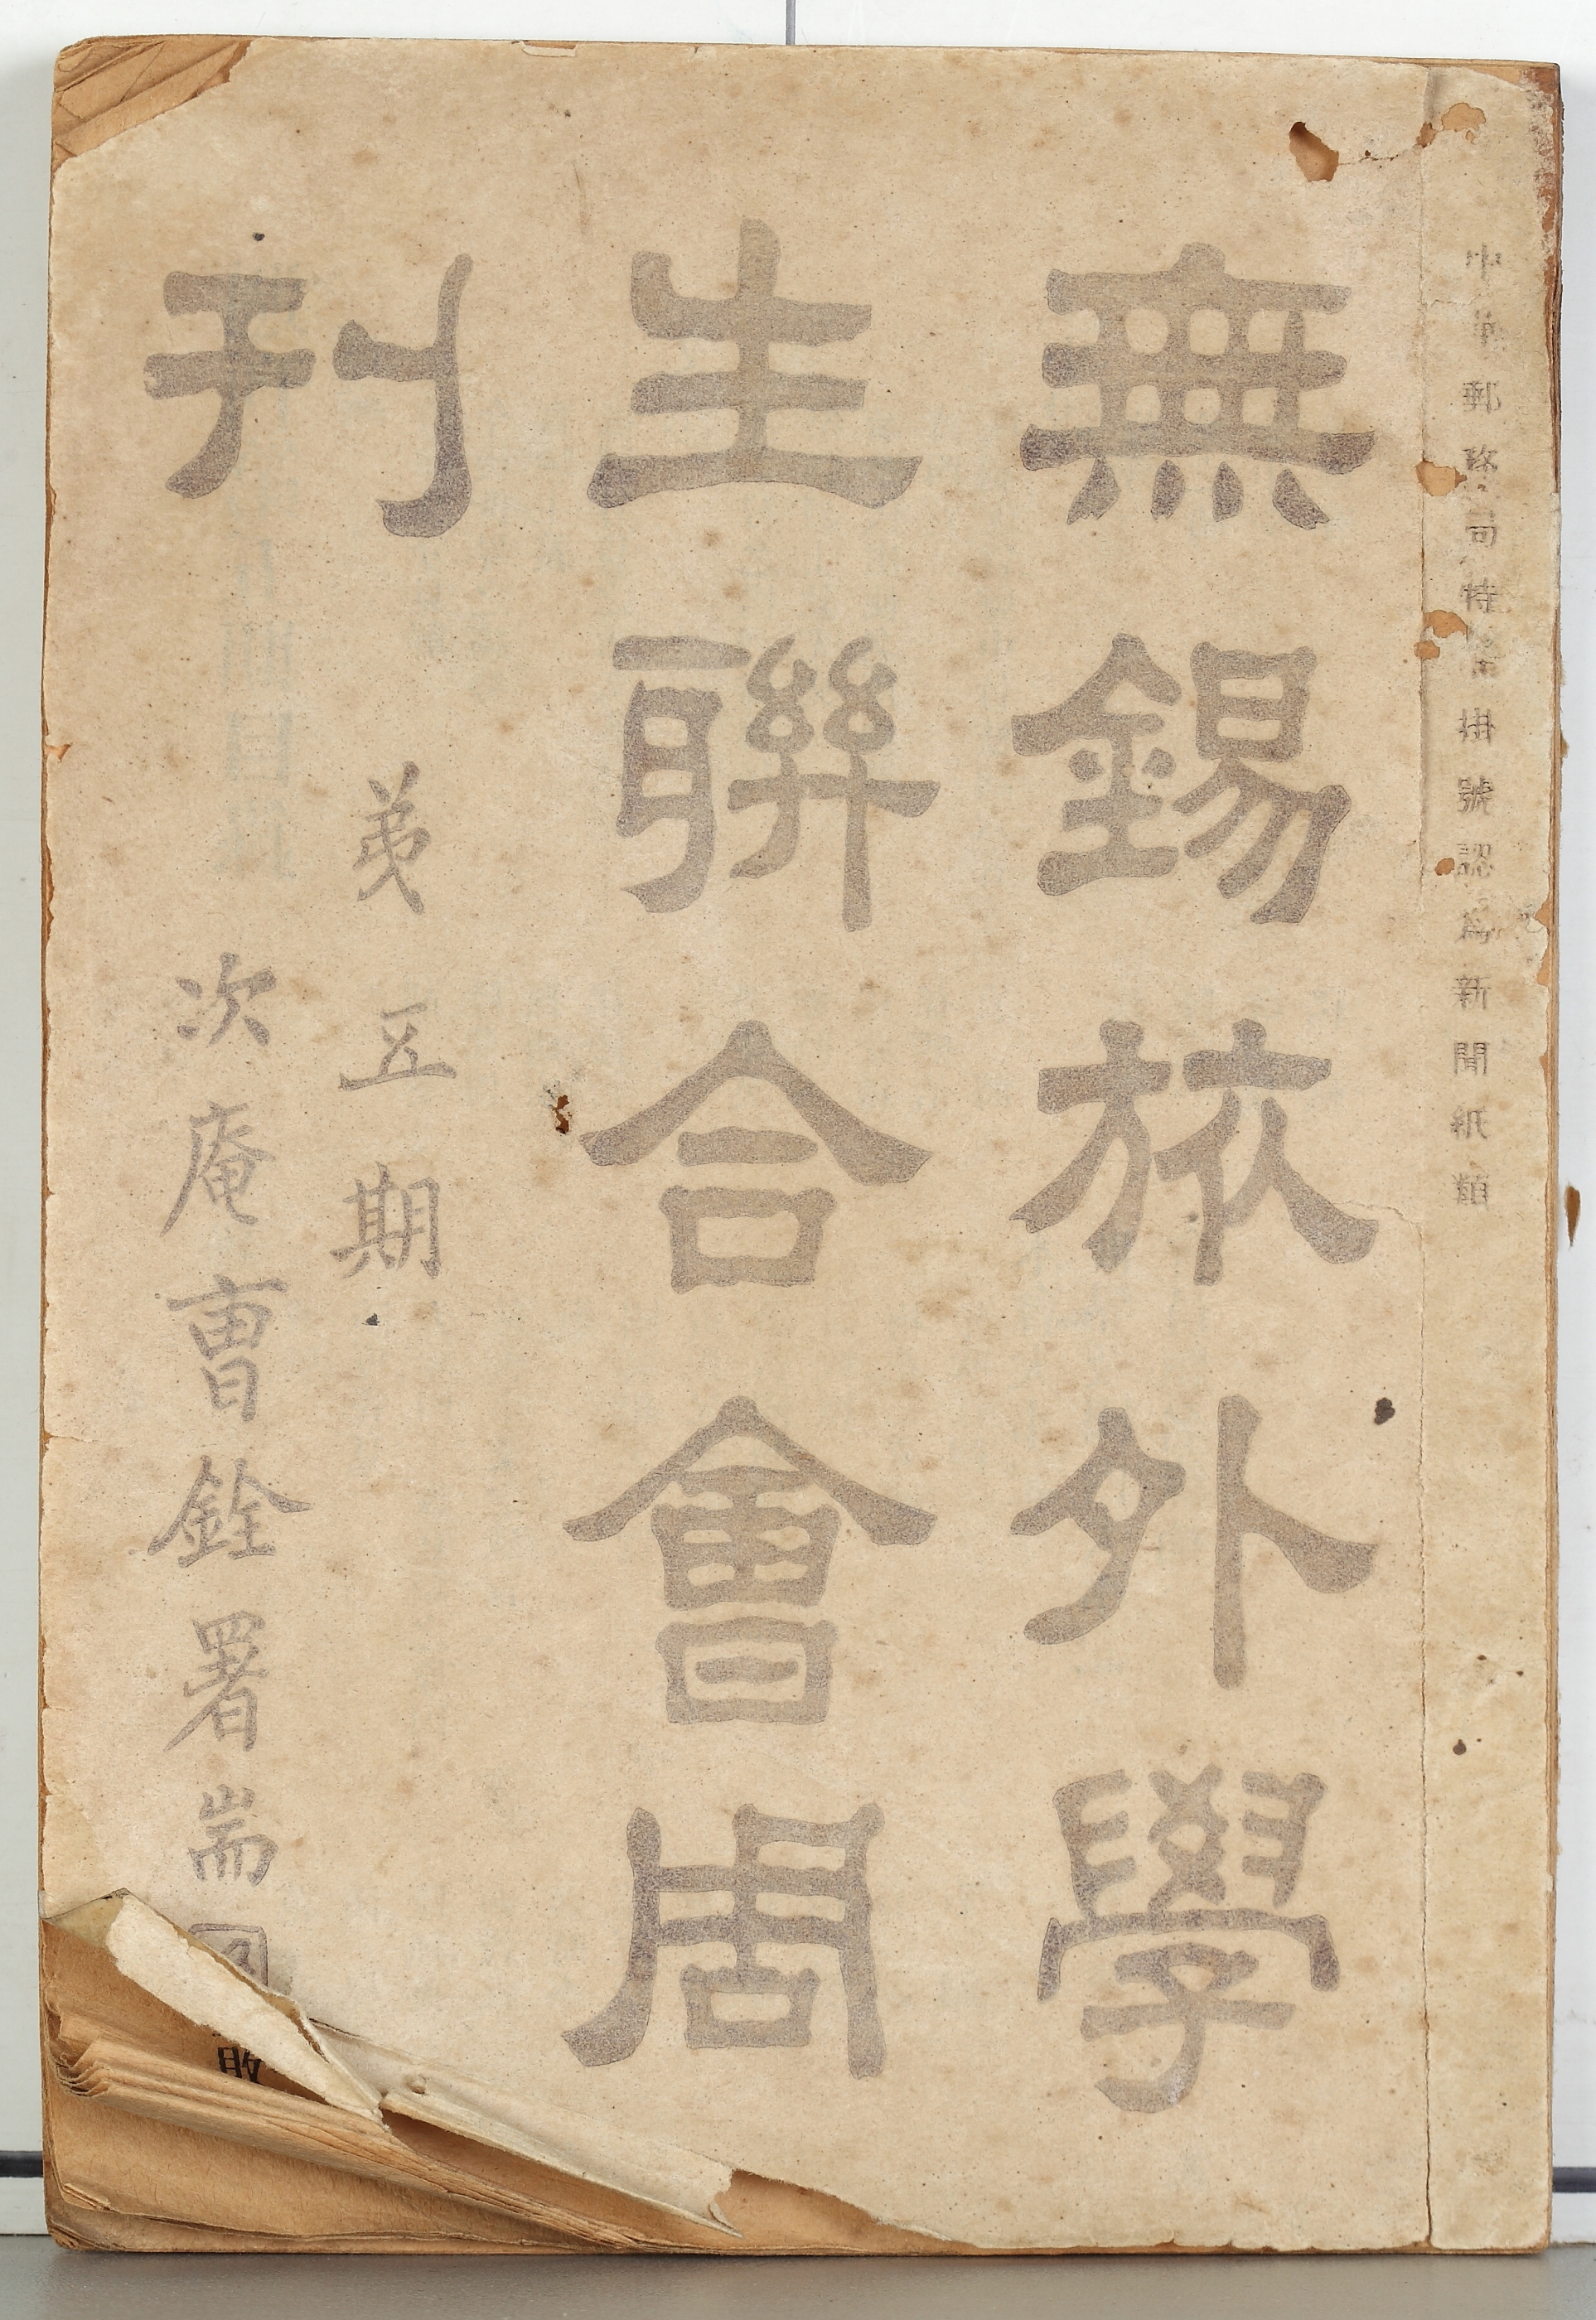 中華郵務局特准掛號認爲新聞紙類
無錫旅外學
生聯合會周
刊
苐五期
次庵曹銓署耑
敗